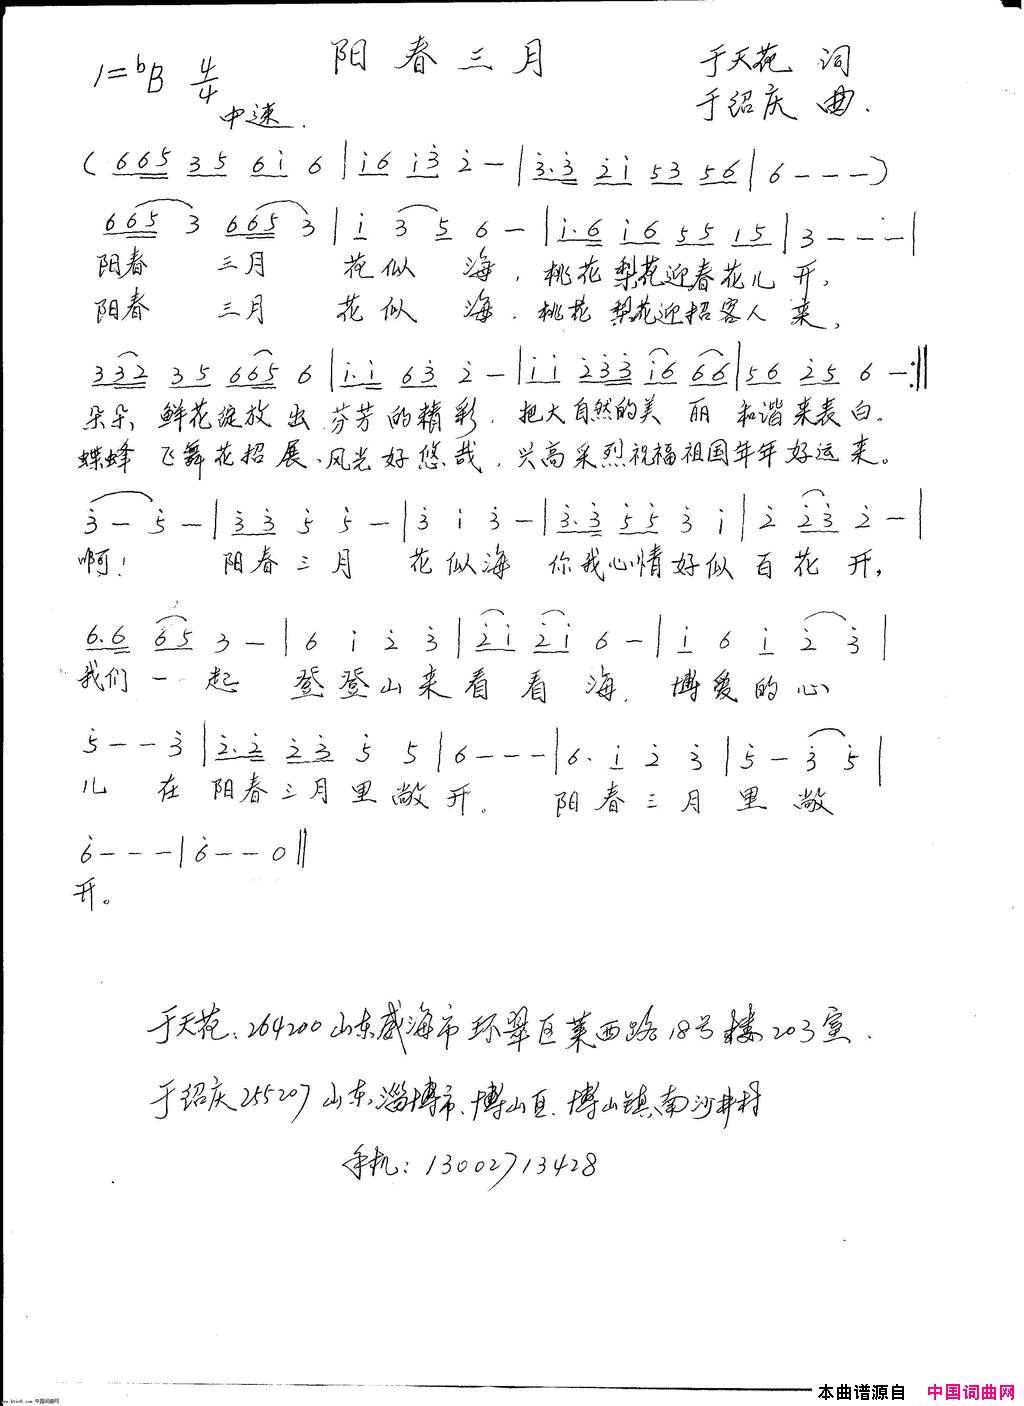 阳春三月
1=bB 4/4
于天花 词
中速.
于绍庆 曲.
( 665 35 6i 6 | i6 i3 2 - | 3.3 2i 53 56 | 6 - - - )
665 3 665 3 | i 3 5 6 - | i.6 i6 55 15 | 3 - - - |
阳春 三月 花似 海，桃花梨花迎春花儿开，
阳春 三月 花似 海，桃花梨花迎招客人来，
332 35 665 6 | i.i 63 2 - | ii 233 i6 66 | 56 25 6 - :||
朵朵鲜花绽放出芬芳的精彩，把大自然的美丽和谐来表白。
蝶蜂飞舞花招展、风光好悠哉，兴高采烈祝福祖国年年好运来。
3 - 5 - | 33 5 5 - | 3 i 3 - | 3.3 55 3 i | 2 23 2 - |
啊！ 阳春三月 花似海 你我心情好似百花开，
6.6 65 3 - | 6 i 2 3 | 2i 2i 6 - | i 6 i 2 3 |
我们一起 登登山来看看海，博爱的心
5 - - 3 | 2.2 23 5 5 | 6 - - - | 6. i 2 3 | 5 - 3 5 |
儿 在阳春三月里敞开。 阳春三月里敞
6 - - - | 6 - - 0 ||
开。
于天花：264200山东威海市环翠区莱西路18号楼203室.
于绍庆255207山东淄博市、博山区、博山镇南沙井村
手机：13002713428
本曲谱源自 中国词曲网
中国词曲网